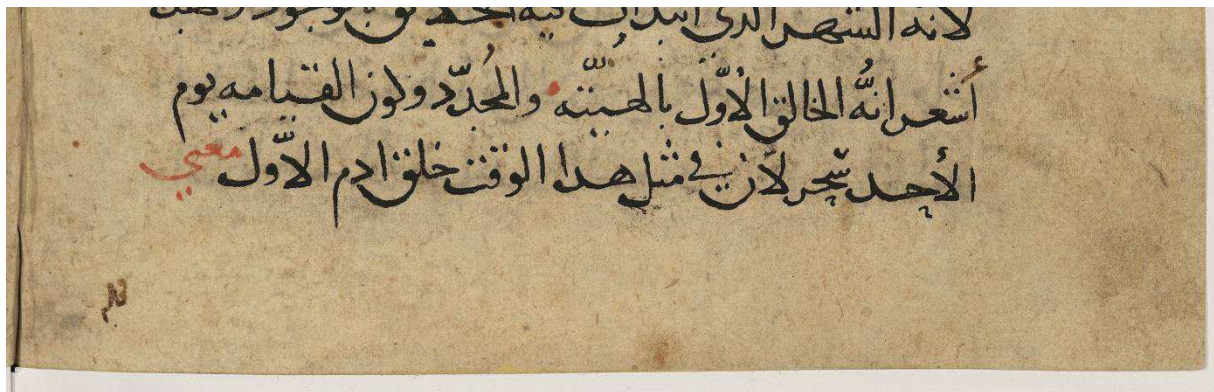 لانه الشهر الذي ابتدات فيه
أشعر انهُ الخالق الأوّل بالهيئته والمُجدّد وكون القيامه يوم
الأحد سَحر لأن في مثل هدا الوقت خلق ادم الاوّل معني